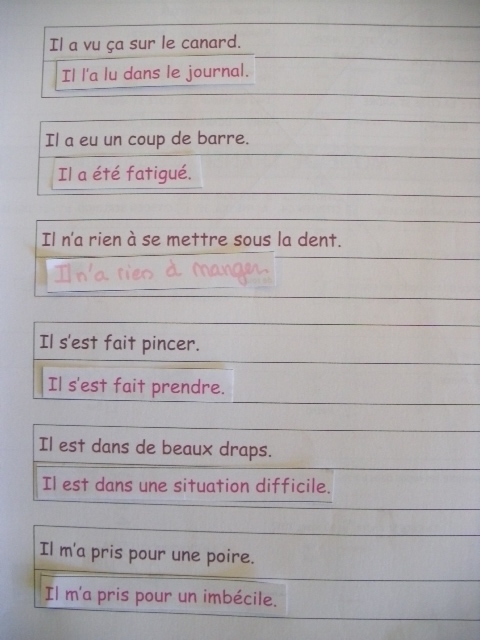 Il a vu ça sur le canard.
Il l'a lu dans le journal.
Il a eu un coup de barre.
Il a été fatigué.
Il n'a rien à se mettre sous la dent.
Il n'a rien à manger.
Il s'est fait pincer.
Il s'est fait prendre.
Il est dans de beaux draps.
Il est dans une situation difficile.
Il m'a pris pour une poire.
Il m'a pris pour un imbécile.